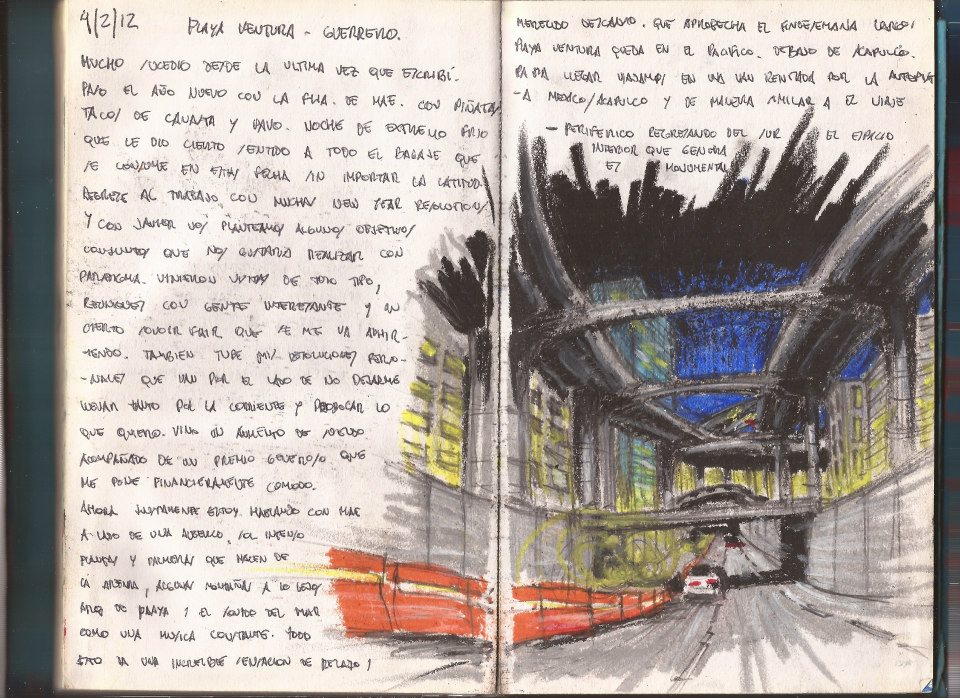 4/2/12 PLAYA VENTURA - GUERRERO.
MUCHO SUCEDIO DESDE LA ULTIMA VEZ QUE ESCRIBÍ.
PASO EL AÑO NUEVO CON LA FMA. DE MAE. CON PIÑATA,
TACOS DE CANASTA Y PAVO. NOCHE DE EXTREMO FRIO
QUE LE DIO CIERTO SENTIDO A TODO EL BAGAJE QUE
SE CONSUME EN ESTAS FECHAS SIN IMPORTAR LA LATITUD.
REGRESE AL TRABAJO CON MUCHAS NEW YEAR RESOLUTIONS
Y CON JAVIER NOS PLANTEAMOS ALGUNOS OBJETIVOS
CONJUNTOS QUE NOS GUSTARIA REALIZAR CON
VINIERON VISITAS DE TODO TIPO,
REUNIONES CON GENTE INTERESANTE Y UN
CIERTO SAVOIR FAIR QUE SE ME VA ADHIR-
-IENDO. TAMBIEN TUBE MIS RESOLUCIONES PERSO-
-NALES QUE VAN POR EL LADO DE NO DEJARME
LLEVAR TANTO POR LA CORRIENTE Y PROVOCAR LO
QUE QUIERO. VINO UN AUMENTO DE SUELDO
ACOMPAÑADO DE UN PREMIO GENEROSO QUE
ME PONE FINANCIERAMENTE COMODO.
AHORA JUSTAMENTE ESTOY HABLANDO CON MAE
A LADO DE UNA SOL INTENSO
PLANTAS Y PALMERAS QUE NACEN DE
LA ARENA, ALGUNAS MONTAÑAS A LO LEJOS
DE PLAYA Y EL SONIDO DEL MAR
COMO UNA MUSICA CONSTANTE. TODO
ESTO DA UNA INCREIBLE SENSACION DE RELAJO Y
MERECIDO DESCANSO. QUE APROBECHA EL FINDESEMANA LARGO.
PLAYA VENTURA QUEDA EN EL PACIFICO. DEBAJO DE ACAPULCO.
PARA LLEGAR VIAJAMOS EN UNA VAN RENTADA POR LA AUTOPIST
-A MEXICO/ACAPULCO Y DE MANERA SIMILAR A EL VIAJE
- PERIFERICO REGRESANDO DEL SUR EL ESPACIO
INTERIOR QUE GENERA
ES MONUMENTAL